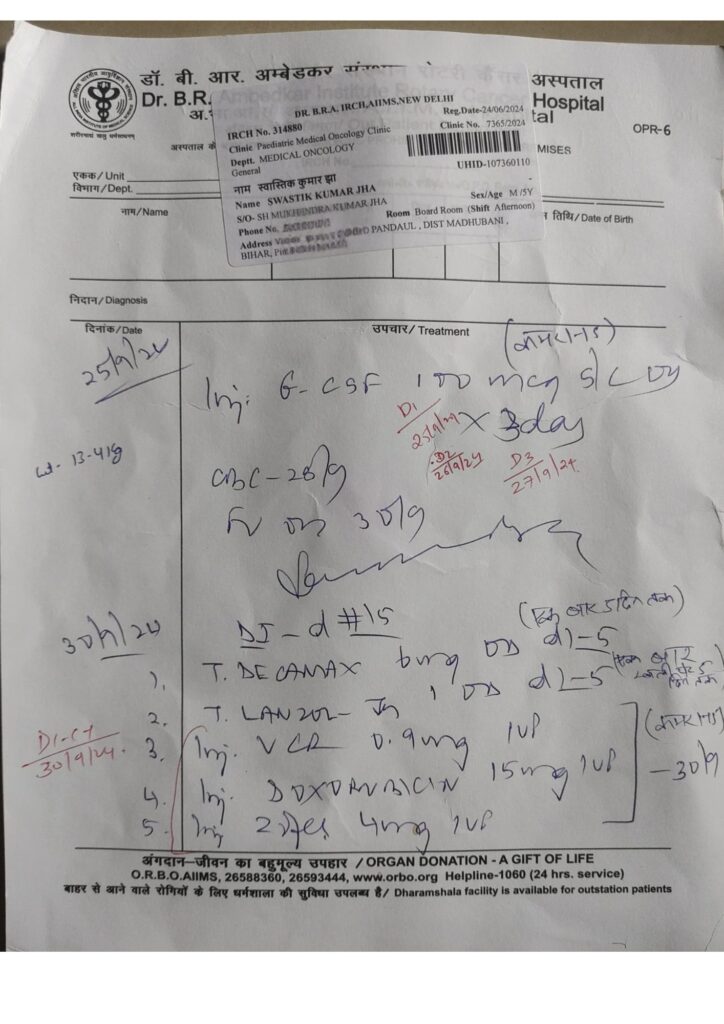 डॉ. बी. आर. अम्बेडकर
अस्पताल
Dr. B.R.
Hospital
OPR-6
DR. B.R.A. IRCH,AIIMS,NEW DELHI
IRCH No. 314880
Reg.Date-24/06/2024
Clinic Paediatric Medical Oncology Clinic
Clinic No. 7365/2024
Deptt. MEDICAL ONCOLOGY
General
UHID-107360110
नाम स्वास्तिक कुमार झा
Name SWASTIK KUMAR JHA
Sex/Age M /5Y
S/O- SH MUKHINDRA KUMAR JHA
Room Board Room (Shift Afternoon)
Phone No.
Address PANDAUL , DIST MADHUBANI ,
BIHAR,
अस्पताल के
MISES
एकक/Unit
विभाग/Dept.
नाम/Name
तिथि/Date of Birth
निदान/Diagnosis
दिनांक/Date
उपचार/Treatment
25/9/24
Inj. G-CSF 100 mcg S/C OD
x 3day
D1 25/9/24
D2 26/9/24
D3 27/9/24
wt- 13.41kg
CBC-28/9
30/9
30/9/24
#15
1. T. DECAMAX 6mg OD d1-5
2. T. LANZOL- 1 OD d1-5
3. Inj. VCR 0.9mg IVP
30/9/24
4. Inj. DOXORUBICIN 15mg IVP
-30/9
5. Inj 4mg IVP
अंगदान–जीवन का बहुमूल्य उपहार / ORGAN DONATION - A GIFT OF LIFE
O.R.B.O.AIIMS, 26588360, 26593444, www.orbo.org Helpline-1060 (24 hrs. service)
बाहर से आने वाले रोगियों के लिए धर्मशाला की सुविधा उपलब्ध है/ Dharamshala facility is available for outstation patients